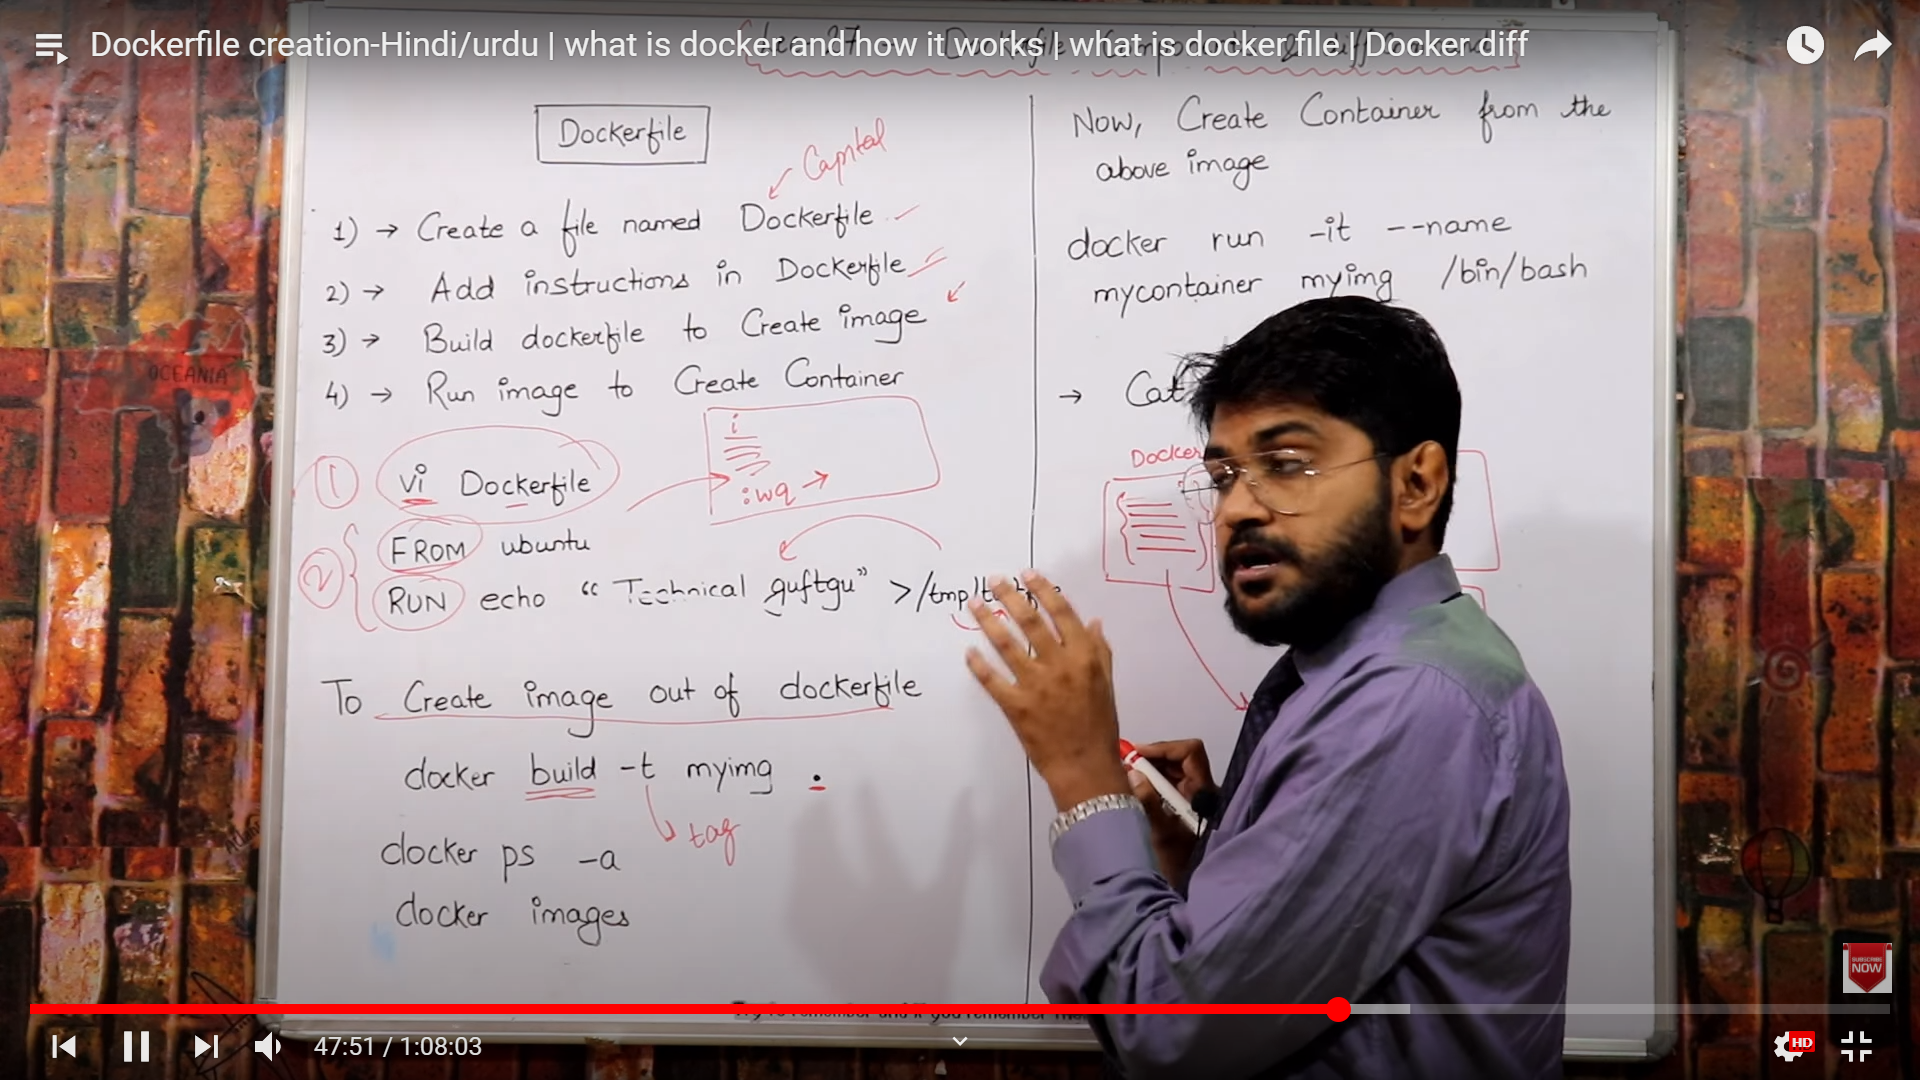 Dockerfile creation-Hindi/urdu | what is docker and how it works | what is docker file | Docker diff
Dockerfile
Capital
1) → Create a file named Dockerfile
2) → Add instructions in Dockerfile
3) → Build dockerfile to Create image
4) → Run image to Create Container
i
:wq →
1 vi Dockerfile
2 FROM ubuntu
RUN echo “Technical guftgu” >/tmp/
To Create image out of dockerfile
docker build -t myimg .
tag
docker ps -a
docker images
Now, Create Container from the
above image
docker run -it --name
mycontainer myimg /bin/bash
→ Cat
Docker
OCEANIA
SUBSCRIBE
NOW
47:51 / 1:08:03
HD